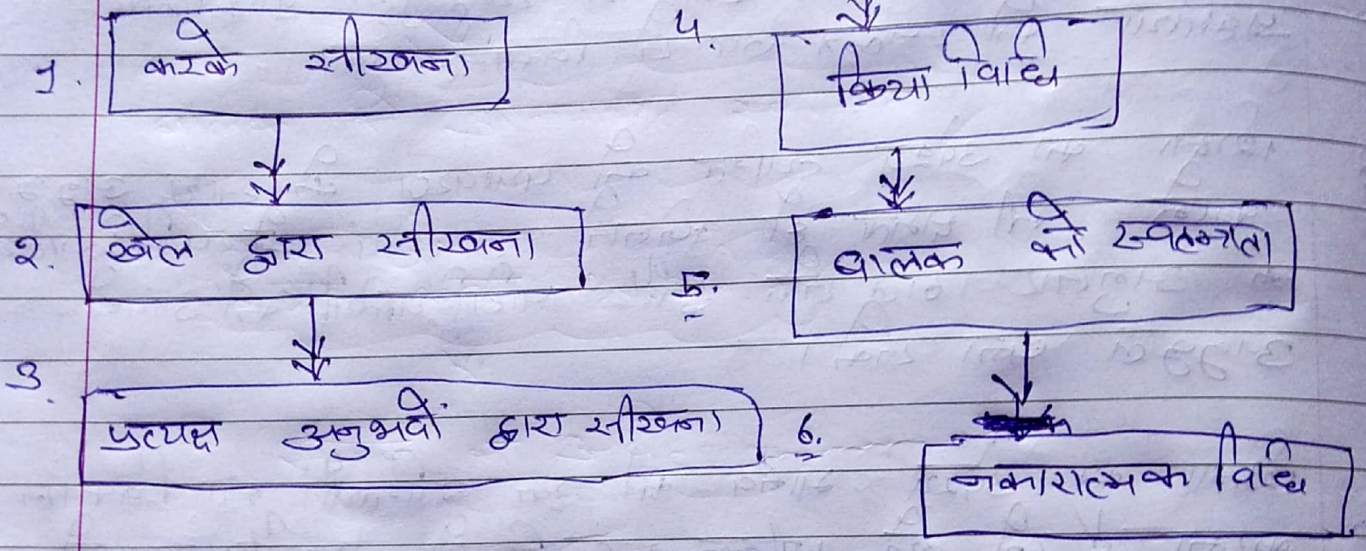 १. करके सीखना
२. खेल द्वारा सीखना
३. प्रत्यक्ष अनुभवों द्वारा सीखना
४. क्रिया विधि
५. बालक को स्वतन्त्रता
6. नकारात्मक विधि